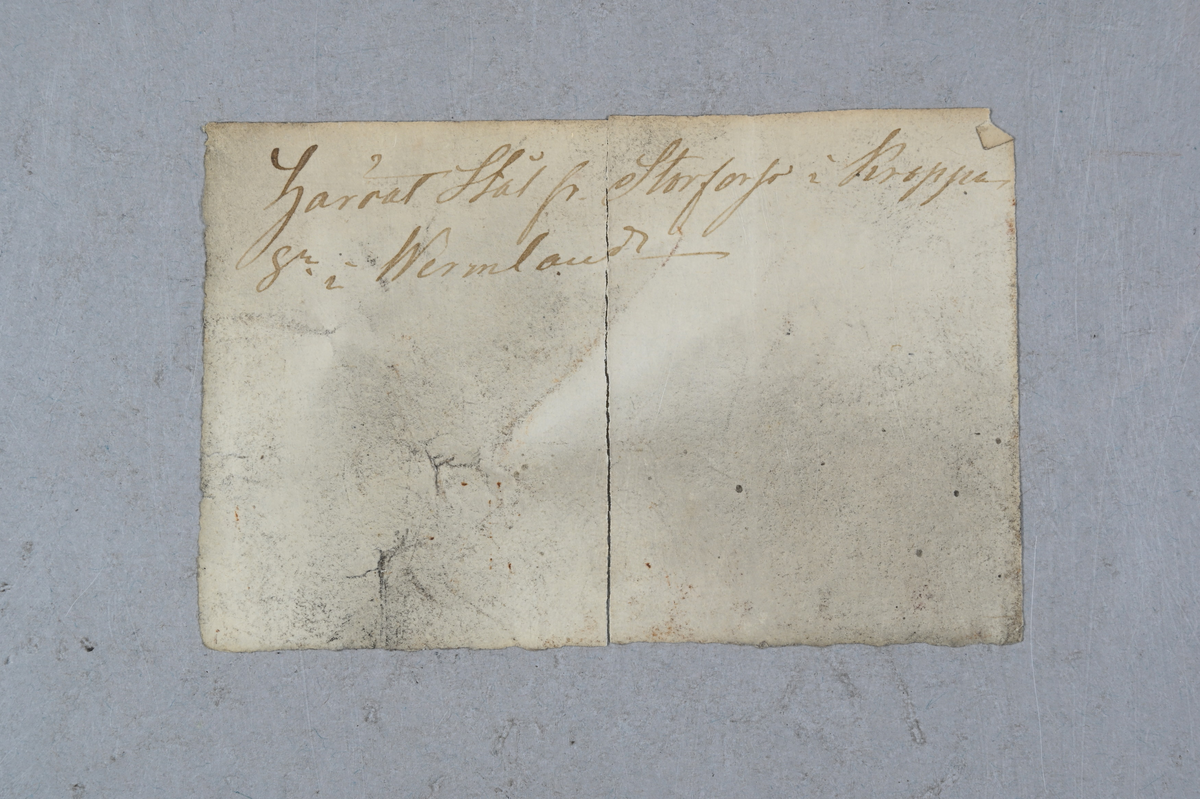 Garvat Stål fr. Storforss i Kroppa
Sn. i Wermland